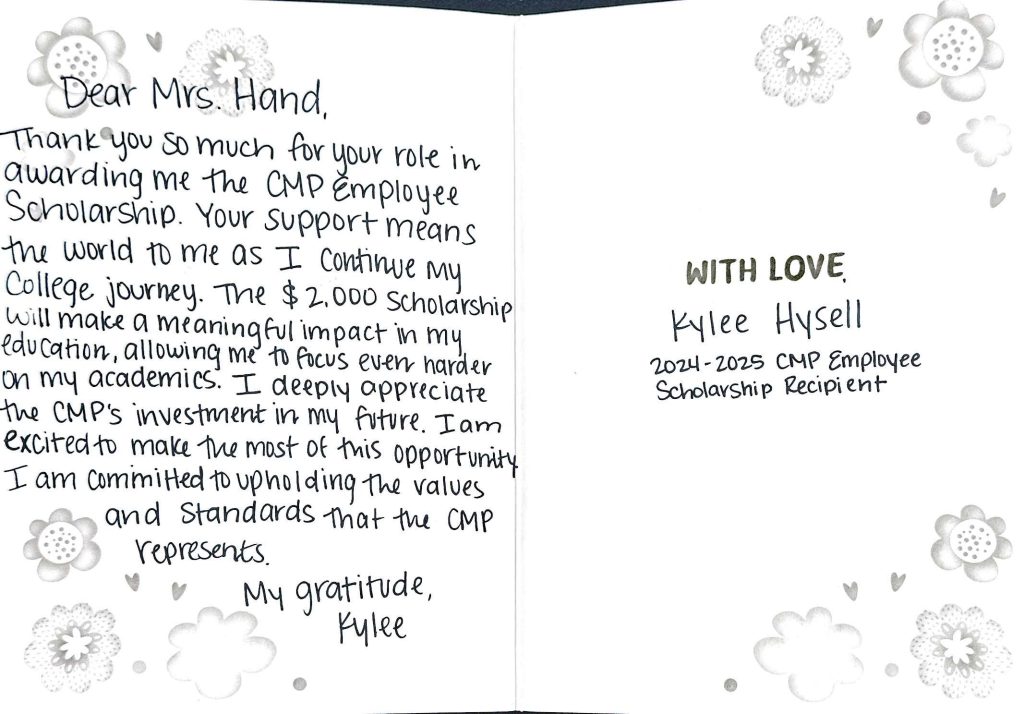 Dear Mrs. Hand,
Thank you so much for your role in
awarding me the CMP Employee
Scholarship. Your support means
the world to me as I continue my
College journey. The $2,000 Scholarship
will make a meaningful impact in my
education, allowing me to focus even harder
on my academics. I deeply appreciate
the CMP's investment in my future. I am
excited to make the most of this opportunity
I am committed to upholding the values
and standards that the CMP
represents.
My gratitude,
Kylee
WITH LOVE,
Kylee Hysell
2024-2025 CMP Employee
Scholarship Recipient